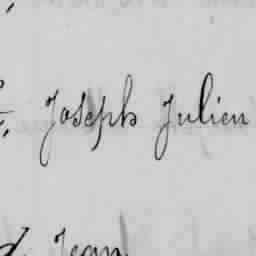 Joseph Julien
Jean